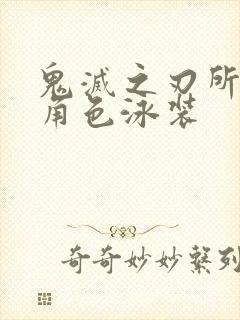 鬼滅之刃所
角色泳装
奇奇妙妙繫列